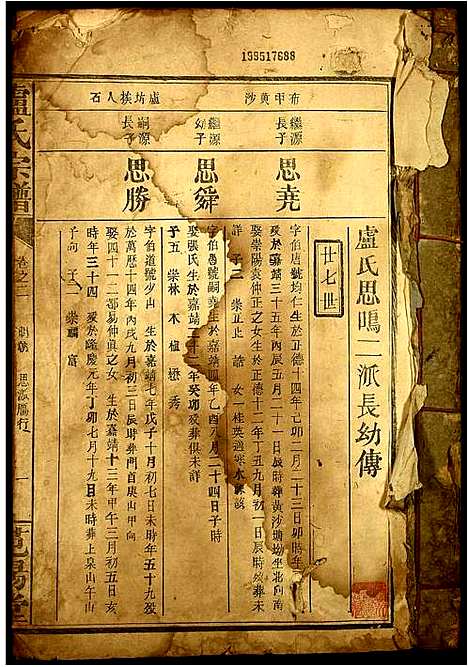 199517688
盧氏思鳴二派長幼傳
廿七世
布甲黄沙
繼源長子
思堯
字伯唐號均仁生於正德十四年己卯二月二十三日卯時
嘉靖三十五年丙辰五月二十一日辰時葬黄沙坐北向南
娶崇陽袁仲正之女生於正德十二年丁丑九月初一日辰時歿葬未
詳 子三 崇正 諮 女一桂英適
繼源幼子
思舜
字伯愚號嗣堯生於嘉靖四年乙酉八月二十四日子時
娶張氏生於嘉靖二十二年癸卯歿葬俱未詳
子五 崇林 木 植 懋 秀
盧坊挨人石
嗣源長子
思勝
字伯道號少山 生於嘉靖七年戊子十月初七日未時年五十九歿
於萬歷十四年丙戌九月初三日辰時葬門首泉山甲向
娶四十一二都易仲貞之女 生於嘉靖十二年甲午三月初五日亥
時年三十四 歿於隆慶元年丁卯七月十九日未時葬上泉山午山
子向 子二 崇 富
盧氏宗譜
卷之二
思派鳳行
一
范陽堂